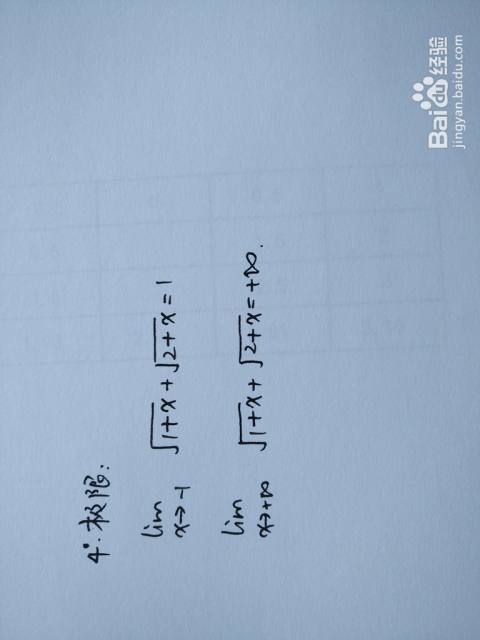 4°.极限:
lim x→-1 √1+x + √2+x = 1
lim x→+∞ √1+x + √2+x = +∞.
Baidu经验
jingyan.baidu.com